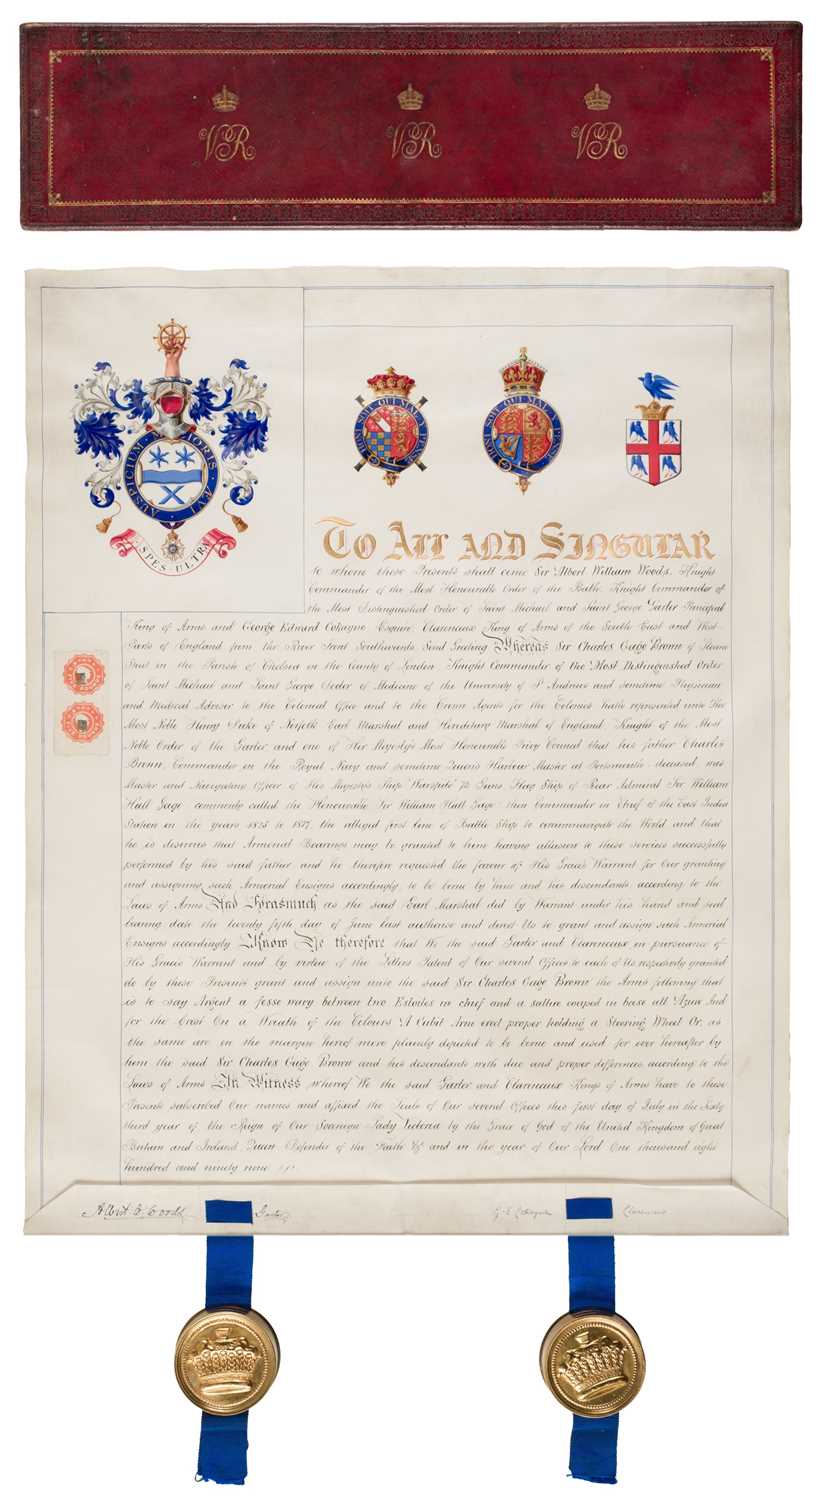 VR VR VR
AUSPICIUM MELIORIS ÆVI
SPES · ULTRA
HONI SOIT QUI MAL Y PENSE
HONI SOIT QUI MAL Y PENSE
To All and Singular
to whom these Presents shall come Sir Albert William Woods, Knight
Commander of the Most Honourable Order of the Bath, Knight Commander of
the Most Distinguished Order of Saint Michael and Saint George Garter Principal
King of Arms and George Edward Cokayne Esquire, Clarenceux King of Arms of the South East and West
Parts of England from the River Trent Southwards Send Greeting Whereas Sir Charles Gage Brown of
Street in the Parish of Chelsea in the County of London Knight Commander of the Most Distinguished Order
of Saint Michael and Saint George Doctor of Medicine of the University of St Andrews and sometime Physician
and Medical Adviser to the Colonial Office and to the Crown Agents for the Colonies hath represented unto The
Most Noble Henry Duke of Norfolk Earl Marshal and Hereditary Marshal of England, Knight of the Most
Noble Order of the Garter and one of Her Majesty's Most Honourable Privy Council that his father Charles
Brown, Commander in the Royal Navy and sometime Queen's Harbour Master at Portsmouth deceased was
Master and Navigating Officer of His Majesty's Ship 'Warspite' 76 Guns Flag Ship of Rear Admiral Sir William
Hall Gage commonly called the Honourable Sir William Hall Gage then Commander in Chief of the East Indies
Station in the years 1825 to 1827, the alleged first Line of Battle Ship to circumnavigate the World and that
he is desirous that Armorial Bearings may be granted to him having allusion to these services successfully
performed by his said father and he therefore requested the favour of His Grace's Warrant for Our granting
and assigning such Armorial Ensigns accordingly to be borne by him and his descendants according to the
Laws of Arms And Forasmuch as the said Earl Marshal did by Warrant under his hand and seal
bearing date the twenty fifth day of June last authorise and direct Us to grant and assign such Armorial
Ensigns accordingly Know Ye therefore that We the said Garter and Clarenceux in pursuance of
His Grace's Warrant and by virtue of the Letters Patent of Our several Offices to each of Us respectively granted
do by these Presents grant and assign unto the said Sir Charles Gage Brown the Arms following that
is to say Argent a fesse wavy between two Estoiles in chief and a saltire couped in base all Azure And
for the Crest On a Wreath of the Colours A Cubit Arm erect proper holding a Steering Wheel Or, as
the same are in the margin hereof more plainly depicted to be borne and used for ever hereafter by
him the said Sir Charles Gage Brown and his descendants with due and proper differences according to the
Laws of Arms In Witness whereof We the said Garter and Clarenceux Kings of Arms have to these
Presents subscribed Our names and affixed the Seals of Our several Offices this first day of July in the Sixty
third year of the Reign of Our Sovereign Lady Victoria by the Grace of God of the United Kingdom of Great
Britain and Ireland Queen Defender of the Faith &c and in the year of Our Lord One thousand eight
hundred and ninety nine
Albert W. Woods Garter G. E. Cokayne Clarenceux